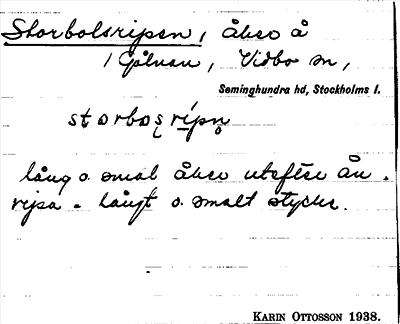 Storbolsripen, åker å
/ Gålnan, Vidbo sn,
Seminghundra hd, Stockholms l.
storbos rípn
lång o. smal åker utefter ån.
ripsa = långt o. smalt stycke.
KARIN OTTOSSON 1938.